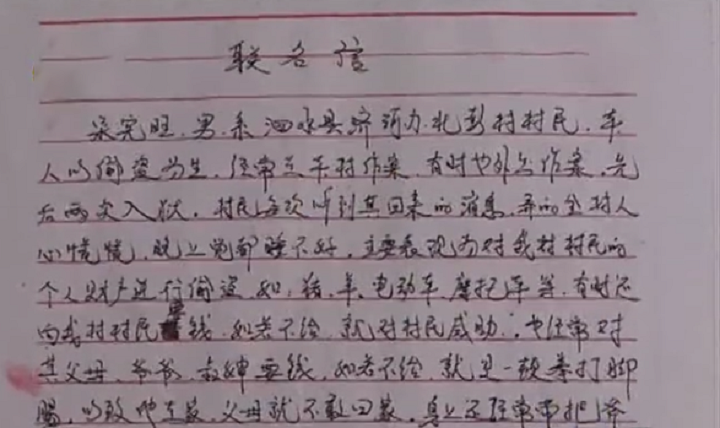 联名信
宋宪旺，男，系泗水县济河办北彭村村民，本
人以偷盗为生，经常在本村作案，有时也外出作案，先
后两次入狱，村民每次听到其回来的消息，弄的全村人
心慌慌，晚上觉都睡不好，主要表现为对我村村民的
个人财产进行偷盗，如，猪、羊、电动车、摩托车等，有时还
向我村村民要钱，如若不给，就对村民威胁，也经常对
其父母、爷爷、叔婶要钱，如若不给，就是一顿拳打脚
踢，以致他在家，父母就不敢回家，身上还经常带把